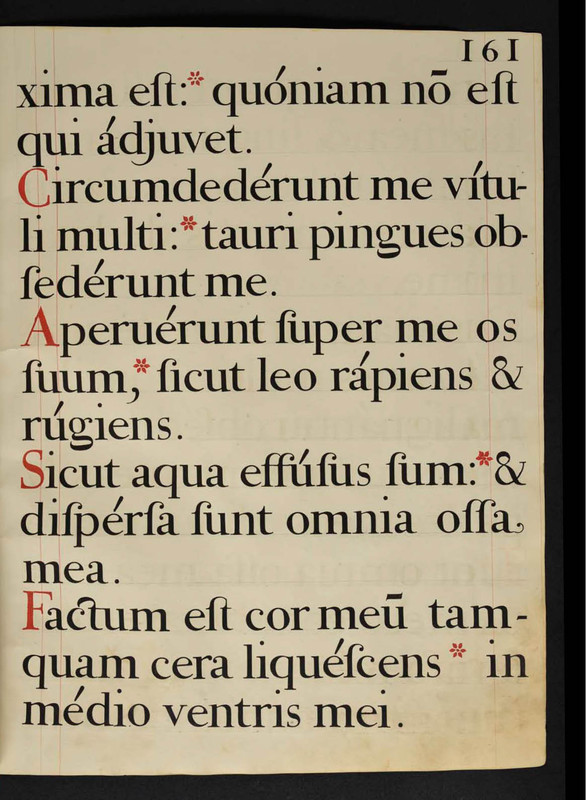 161
xima eſt:* quóniam nō eſt
qui ádjuvet.
Circumdedérunt me vítu-
li multi:* tauri pingues ob-
ſedérunt me.
Aperuérunt ſuper me os
ſuum,* ſicut leo rápiens &
rúgiens.
Sicut aqua effúſus ſum:* &
diſpérſa ſunt omnia oſſa,
mea.
Factum eſt cor meū tam-
quam cera liquéſcens * in
médio ventris mei.